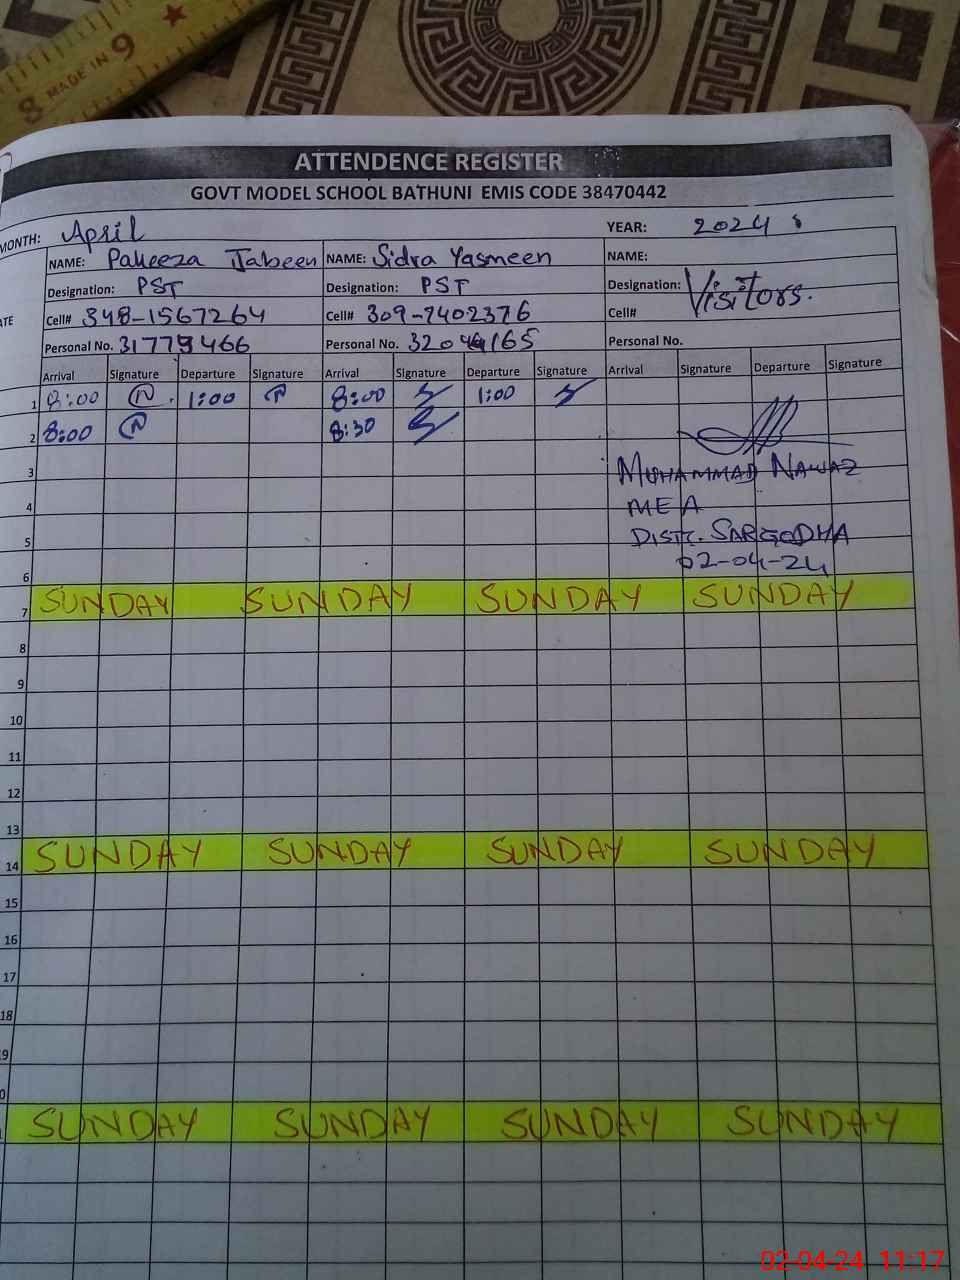 8 MADE IN 9
ATTENDENCE REGISTER
GOVT MODEL SCHOOL BATHUNI EMIS CODE 38470442
MONTH: April YEAR: 2024
NAME: Pakeeza Jabeen NAME: Sidra Yasmeen NAME:
Designation: PST Designation: PST Designation: Visitors.
Cell# 348-1567264 Cell# 309-7402376 Cell#
Personal No. Personal No. Personal No.
Arrival Signature Departure Signature Arrival Signature Departure Signature Arrival Signature Departure Signature
1 8:00 1:00 8:00 1:00
2 8:00 8:30
3 MUHAMMAD NAWAZ
4 MEA
5 DISTT. SARGODHA
6 02-04-24
7 SUNDAY SUNDAY SUNDAY SUNDAY
8
9
10
11
12
13
14 SUNDAY SUNDAY SUNDAY SUNDAY
15
16
17
18
SUNDAY SUNDAY SUNDAY SUNDAY
02-04-24 11:17